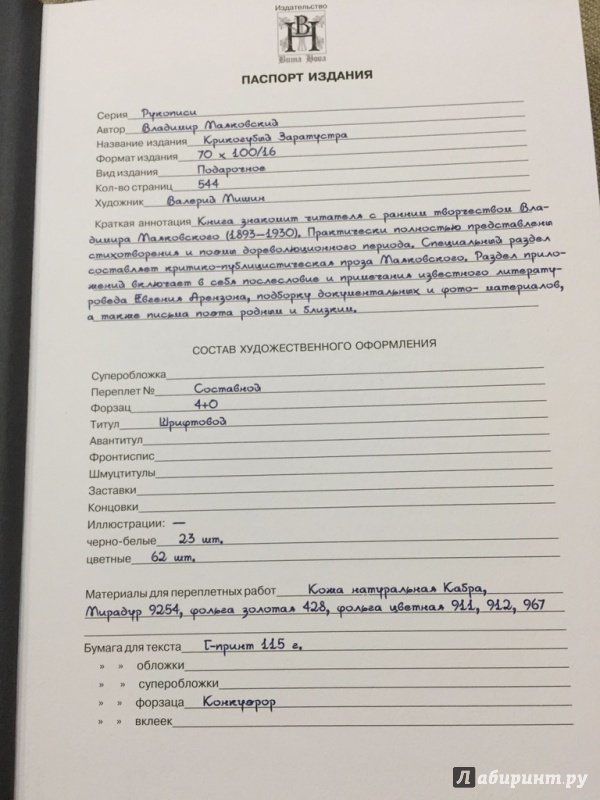 Издательство
ВН
Вита Нова
ПАСПОРТ ИЗДАНИЯ
Серия Рукописи
Автор Владимир Маяковский
Название издания Крикогубый Заратустра
Формат издания 70 х 100/16
Вид издания Подарочное
Кол-во страниц 544
Художник Валерий Мишин
Краткая аннотация Книга знакомит читателя с ранним творчеством Вла-
димира Маяковского (1893—1930). Практически полностью представлены
стихотворения и поэмы дореволюционного периода. Специальный раздел
составляет критико-публицистическая проза Маяковского. Раздел прило-
жений включает в себя послесловие и примечания известного литерату-
роведа Евгения Арензона, подборку документальных и фото- материалов,
а также письма поэта родным и близким.
СОСТАВ ХУДОЖЕСТВЕННОГО ОФОРМЛЕНИЯ
Суперобложка
Переплет № Составной
Форзац 4+0
Титул Шрифтовой
Авантитул
Фронтиспис
Шмуцтитулы
Заставки
Концовки
Иллюстрации: —
черно-белые 23 шт.
цветные 62 шт.
Материалы для переплетных работ Кожа натуральная Кабра,
Мирадур 9254, фольга золотая 428, фольга цветная 911, 912, 967
Бумага для текста G-принт 115 г.
» » обложки
» » суперобложки
» » форзаца Конкуэрор
» » вклеек
Лабиринт.ру